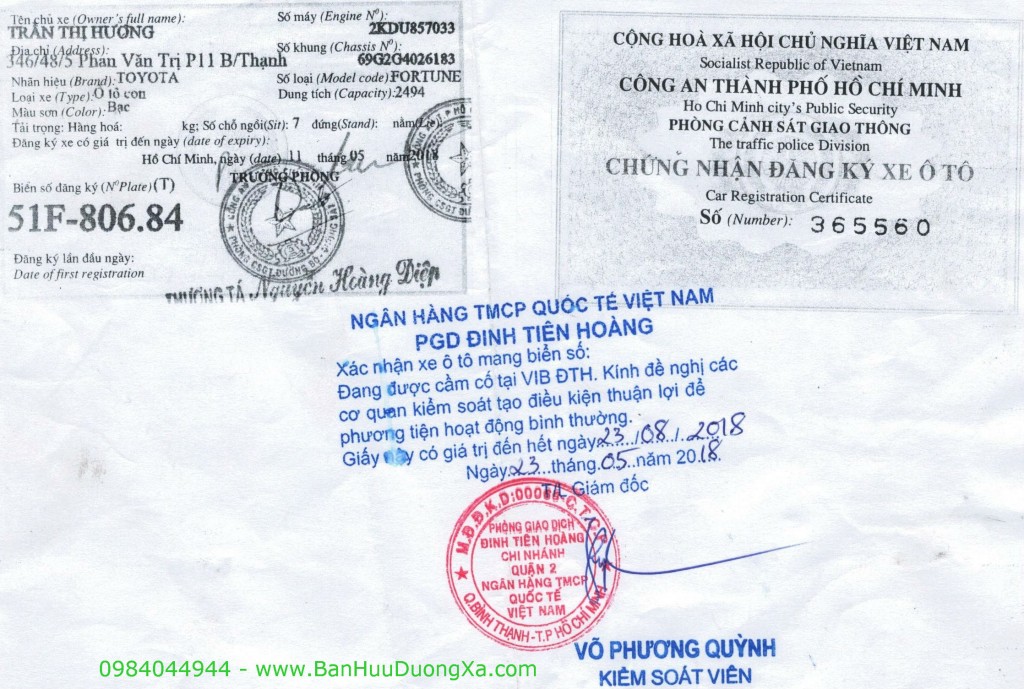 Tên chủ xe (Owner's full name):
TRẦN THỊ HƯƠNG
Địa chỉ (Address):
346/48/5 Phan Văn Trị P11 B/Thạnh
Nhãn hiệu (Brand): TOYOTA
Loại xe (Type): Ô tô con
Màu sơn (Color): Bạc
Tải trọng: Hàng hoá: kg; Số chỗ ngồi(Sit): 7 đứng(Stand): nằm(Lie):
Đăng ký xe có giá trị đến ngày (date of expiry):
Hồ Chí Minh, ngày (date) 11 tháng 05 năm 2018
TRƯỞNG PHÒNG
Biển số đăng ký (N°Plate) (T)
51F-806.84
Đăng ký lần đầu ngày:
Date of first registration
THƯỢNG TÁ Nguyễn Hoàng Diệp
Số máy (Engine N°):
2KDU857033
Số khung (Chassis N°):
69G2G4026183
Số loại (Model code): FORTUNE
Dung tích (Capacity): 2494
CỘNG HOÀ XÃ HỘI CHỦ NGHĨA VIỆT NAM
Socialist Republic of Vietnam
CÔNG AN THÀNH PHỐ HỒ CHÍ MINH
Ho Chi Minh city's Public Security
PHÒNG CẢNH SÁT GIAO THÔNG
The traffic police Division
CHỨNG NHẬN ĐĂNG KÝ XE Ô TÔ
Car Registration Certificate
Số (Number): 365560
NGÂN HÀNG TMCP QUỐC TẾ VIỆT NAM
PGD ĐINH TIÊN HOÀNG
Xác nhận xe ô tô mang biển số:
Đang được cầm cố tại VIB ĐTH. Kính đề nghị các
cơ quan kiểm soát tạo điều kiện thuận lợi để
phương tiện hoạt động bình thường.
Giấy này có giá trị đến hết ngày 23/08/2018
Ngày 23 tháng 05 năm 2018
T/L Giám đốc
PHÒNG GIAO DỊCH
ĐINH TIÊN HOÀNG
CHI NHÁNH
QUẬN 2
NGÂN HÀNG TMCP
QUỐC TẾ
VIỆT NAM
Q.BÌNH THẠNH-T.P HỒ CHÍ MINH
VÕ PHƯƠNG QUỲNH
KIỂM SOÁT VIÊN
0984044944 - www.BanHuuDuongXa.com